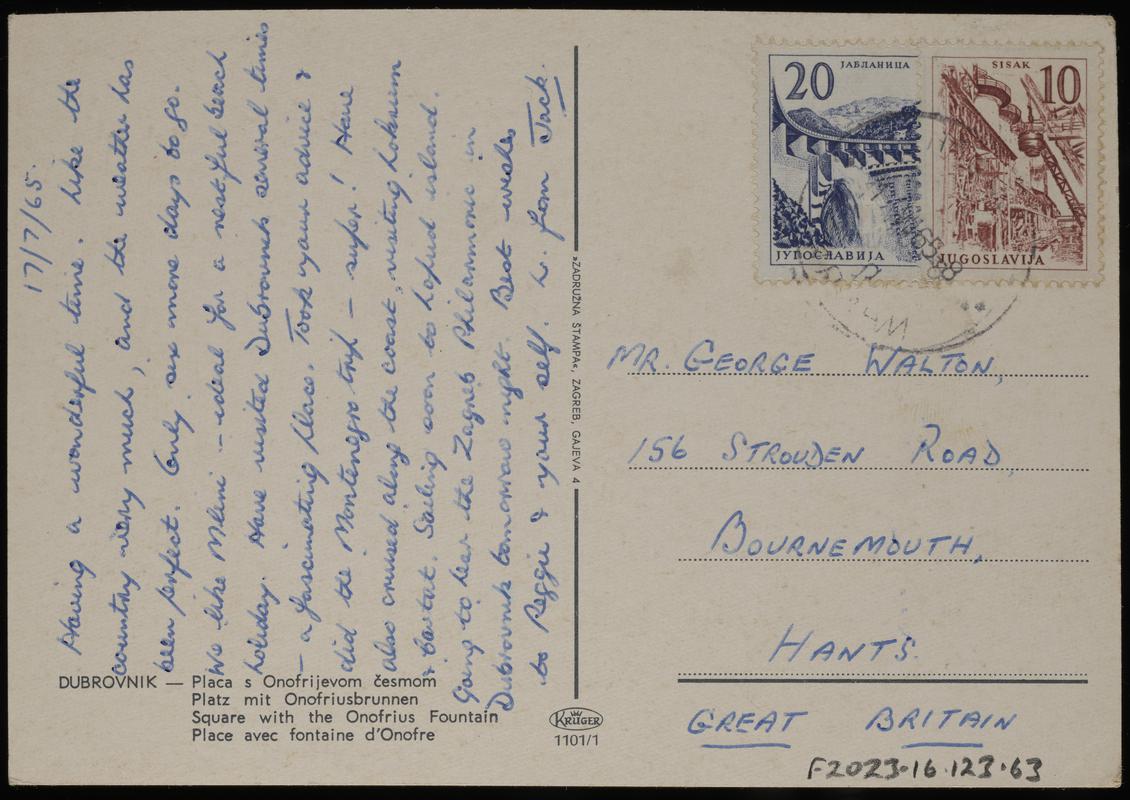 17/7/65
Having a wonderful time. Like the
country very much, and the weather has
been perfect. Only six more days to go.
We like Mlini – ideal for a restful beach
holiday. Have visited Dubrovnik several times
– a fascinating place. Took your advice &
did the Montenegro trip – super! Have
also cruised along the coast, visiting Lokrum
& Cavtat. Sailing soon to Lopud island.
Going to hear the Zagreb Philharmonic in
Dubrovnik tomorrow night. Best wishes
to Reggie & your self. L. from Jack.
DUBROVNIK — Placa s Onofrijevom česmom
Platz mit Onofriusbrunnen
Square with the Onofrius Fountain
Place avec fontaine d'Onofre
»ZADRUŽNA ŠTAMPA«, ZAGREB, GAJEVA 4
KRÜGER
1101/1
20 ЈАБЛАНИЦА
ЈУГОСЛАВИЈА
SISAK 10
JUGOSLAVIJA
MR. GEORGE WALTON,
156 STROUDEN ROAD,
BOURNEMOUTH,
HANTS.
GREAT BRITAIN
F2023.16.123.63